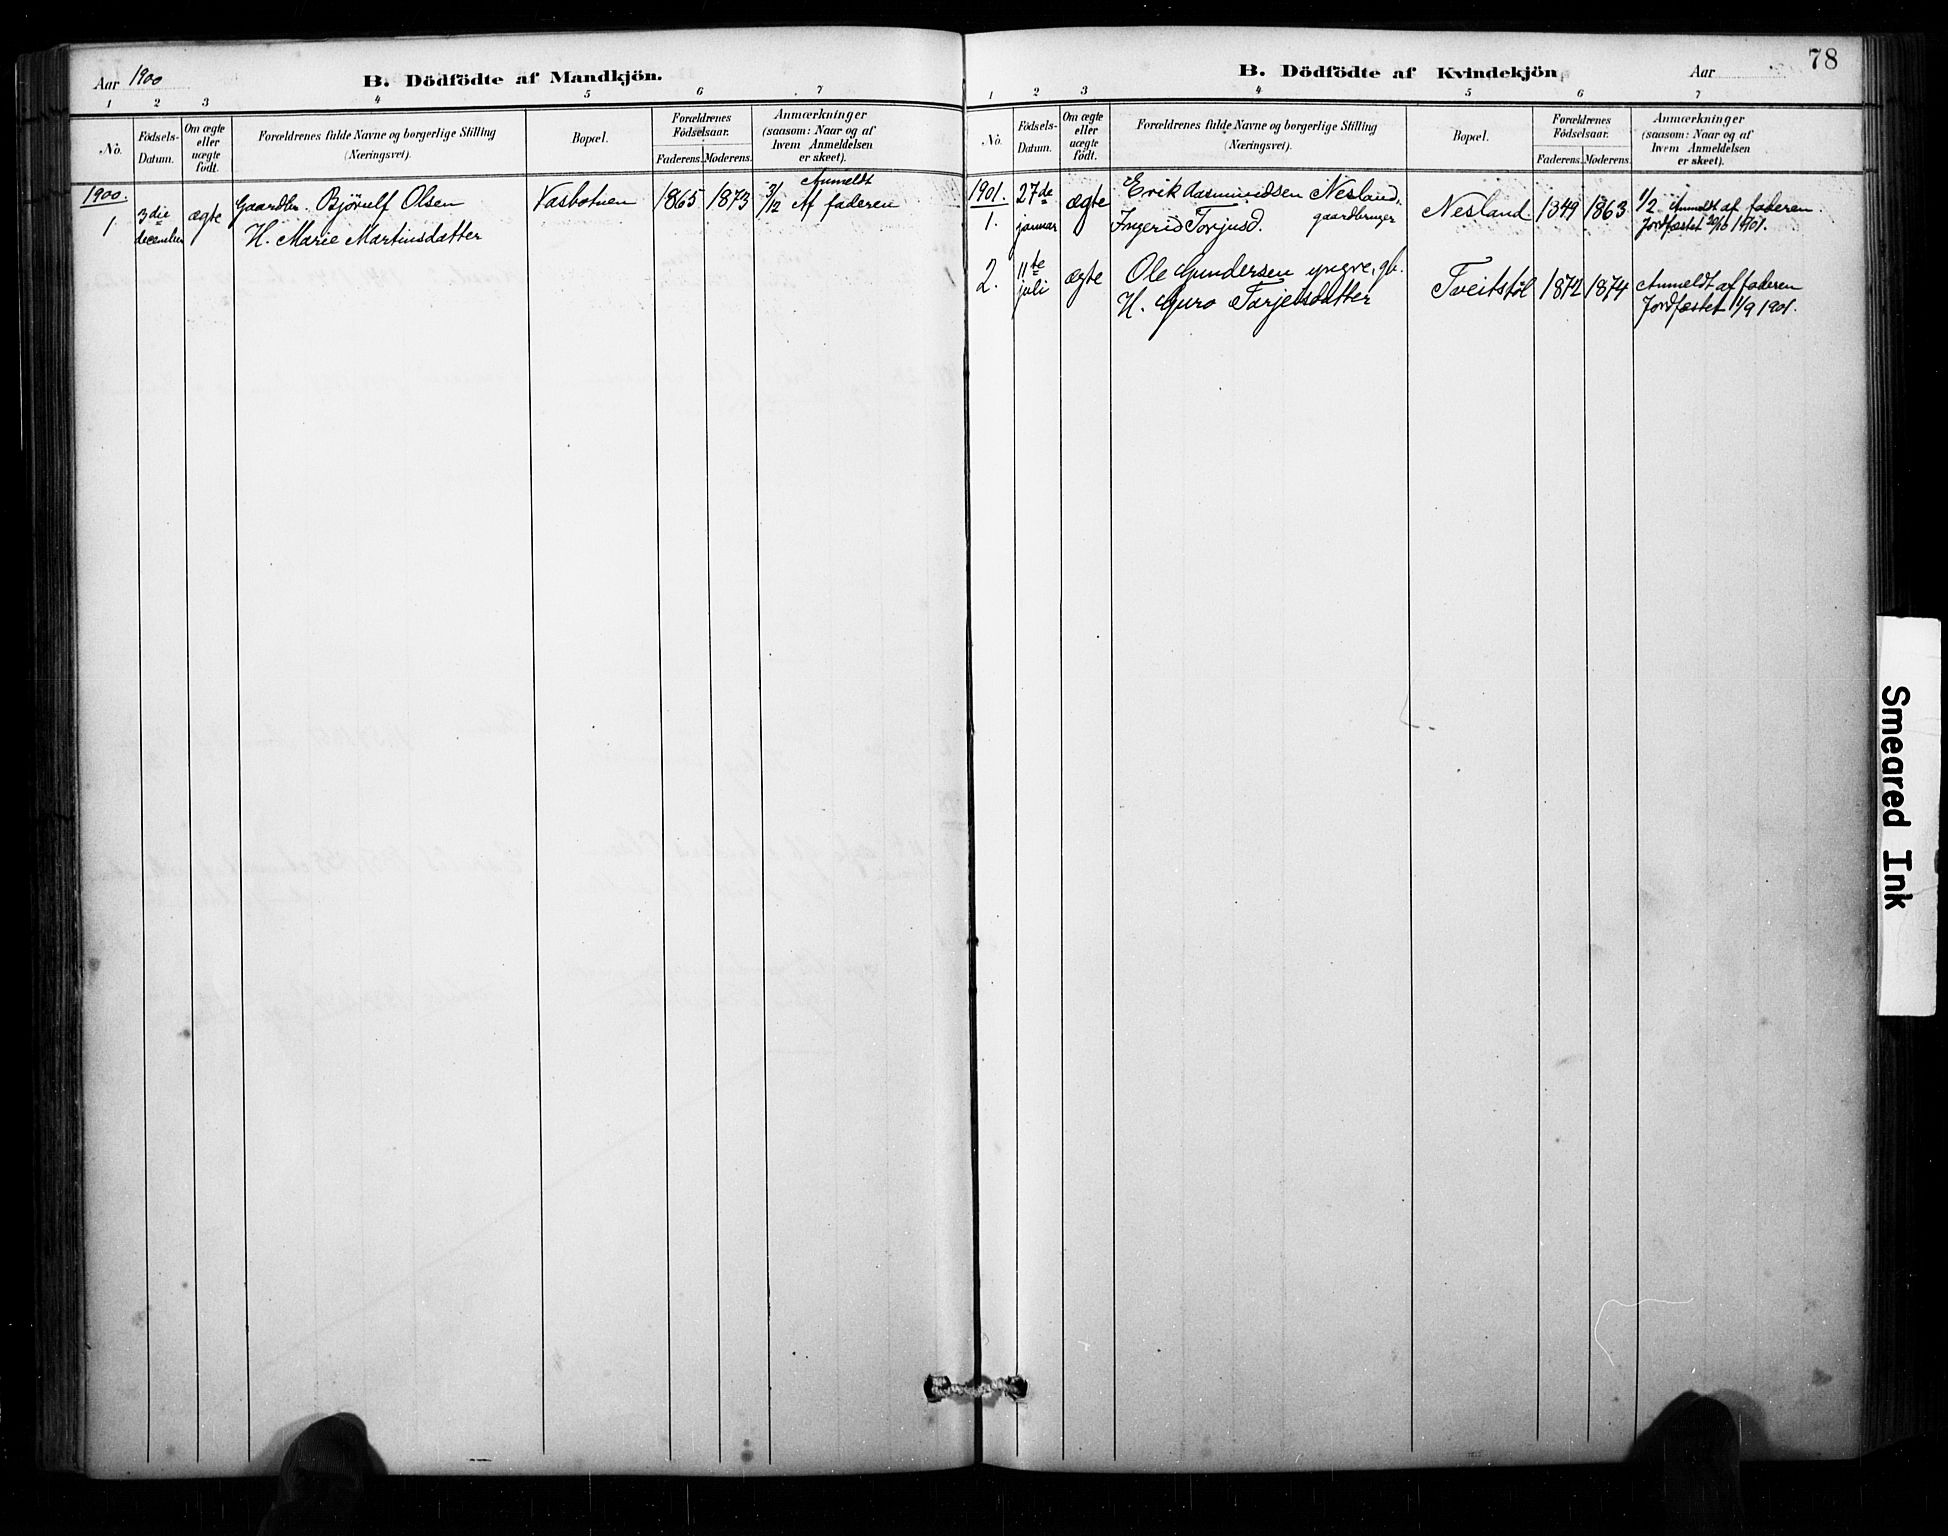 Aar 1900
B. Dödfödte af Mandkjön.
1 2 3 4 5 6 7
No. Födsels-Datum. Om ægte eller uægte födt. Forældrenes fulde Navne og borgerlige Stilling (Næringsvei). Bopæl. Forældrenes Födselsaar. Faderens. Moderens. Anmærkninger (saasom: Naar og af hvem Anmeldelsen er skeet).
1900.
1. 3die december ægte Gaardbr. Bjørulf Olsen Vasbotnen 1865 1873 3/12 Anmeldt af faderen
H. Marie Martinsdatter
78
B. Dödfödte af Kvindekjön
Aar
1 2 3 4 5 6 7
No. Födsels-Datum. Om ægte eller uægte födt. Forældrenes fulde Navne og borgerlige Stilling (Næringsvei). Bopæl. Forældrenes Födselsaar. Faderens. Moderens. Anmærkninger (saasom: Naar og af hvem Anmeldelsen er skeet).
1901.
1. 27de januar ægte Erik Aasmundsen Nesland, gaardbruger Nesland 1849 1863 1/2 Anmeldt af faderen.
Ingerid Torjusd. Jordfæstet 1901.
2. 11te juli ægte Ole Gundersen yngre, gb. Tveitstøl 1872 1874 Anmeldt af faderen
H. Guro Tarjeisdatter Jordfæstet 1/9 1901.
Smeared Ink